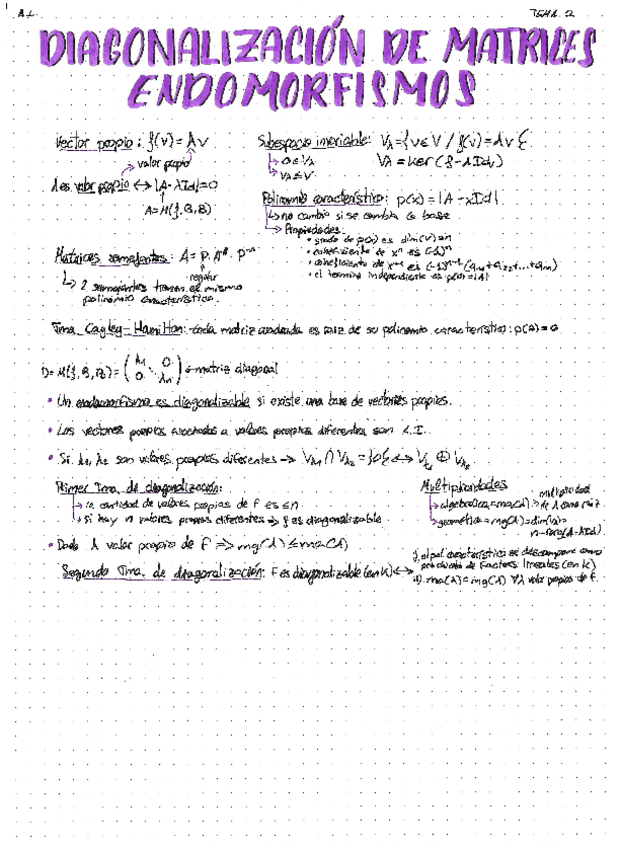 A.L. TEMA 2
DIAGONALIZACIÓN DE MATRICES
ENDOMORFISMOS
Vector propio: f(v) = λv
valor propio
λ es valor propio ↔ |A-λId|=0
A=M(f,B,B)
Subespacio invariable: Vλ={v∈V / f(v)=λv}
0∈Vλ
Vλ≤V
Vλ=ker(f-λId)
Polinomio característico: p(x)=|A-xId|
no cambia si se cambia la base
Propiedades:
• grado de p(x) es dim(V)=n
• coeficiente de xⁿ es (-1)ⁿ
• coeficiente de xⁿ⁻¹ es (-1)ⁿ⁻¹(a₁₁+a₂₂+...+aₙₙ)
• el termino independiente es p(0)=|A|
Matrices semejantes: A = P. A. P⁻¹
regular
2 semejantes tienen el mismo
polinomio característico.
Tma Cayley-Hamilton: cada matriz cuadrada es raiz de su polinomio característico: p(A)=0
D=M(f,B,B)=(λ₁ 0 ⋱ 0 λₙ) ← matriz diagonal
• Un endomorfismo es diagonalizable si existe una base de vectores propios.
• Los vectores propios asociados a valores propios diferentes son L.I.
• Si λ₁, λ₂ son valores propios diferentes → Vλ₁ ∩ Vλ₂ = {0} ↔ Vλ₁ ⊕ Vλ₂
Primer Tma. de diagonalización:
la cantidad de valores propios de f es ≤n
si hay n valores propios diferentes ⇒ f es diagonalizable
Multiplicidades
algebraica=ma(λ)= multiplicidad
de λ como raiz
geométrica=mg(λ)=dim(Vλ)=
n-rang(A-λId)
• Dado λ valor propio de f ⇒ mg(λ)≤ma(λ)
Segundo Tma. de diagonalización: f es diagonalizable (en K) ↔
i) el pol característico se descompone como
producto de factores lineales (en K)
ii) ma(λ)=mg(λ) ∀λ valor propio de f.